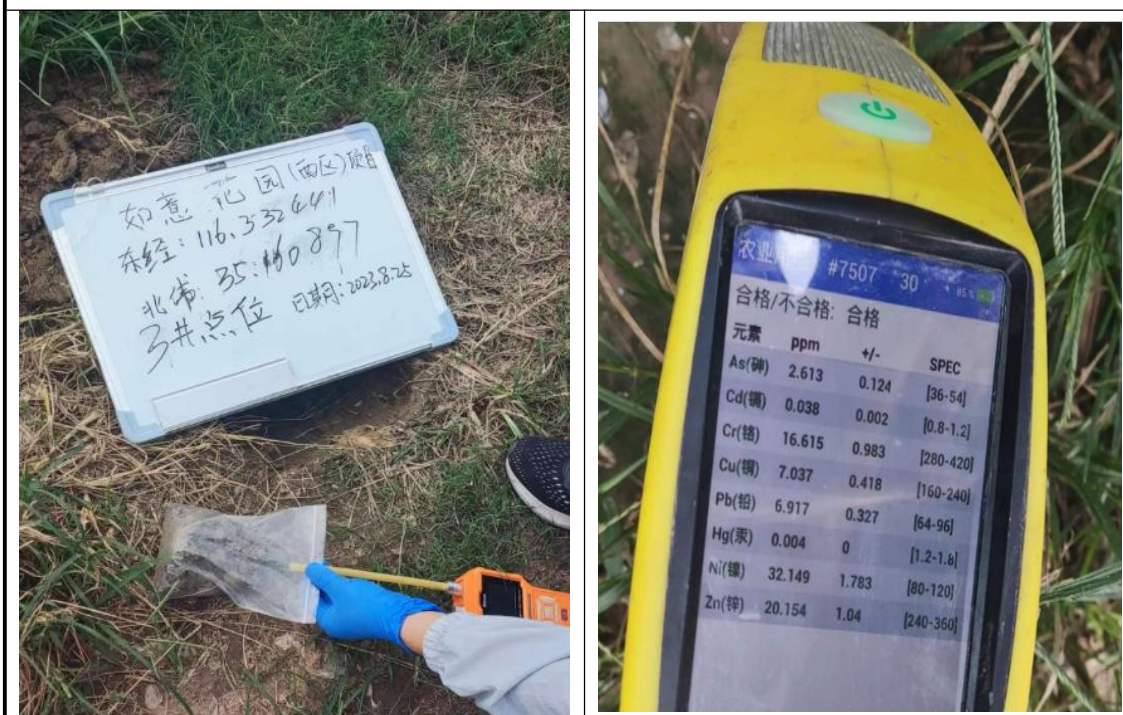 如意花园(西区)项目
东经：116.332441
北纬：35.160897
3#点位 日期：2023.8.25
农业用地 #7507 30 85%
合格/不合格: 合格
元素 ppm +/- SPEC
As(砷) 2.613 0.124 [36-54]
Cd(镉) 0.038 0.002 [0.8-1.2]
Cr(铬) 16.615 0.983 [280-420]
Cu(铜) 7.037 0.418 [160-240]
Pb(铅) 6.917 0.327 [64-96]
Hg(汞) 0.004 0 [1.2-1.8]
Ni(镍) 32.149 1.783 [80-120]
Zn(锌) 20.154 1.04 [240-360]